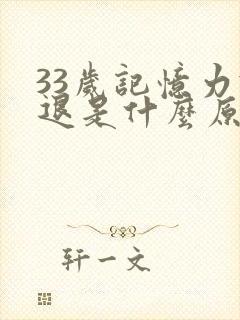 33歲記憶力
退是什麼原
轩一文